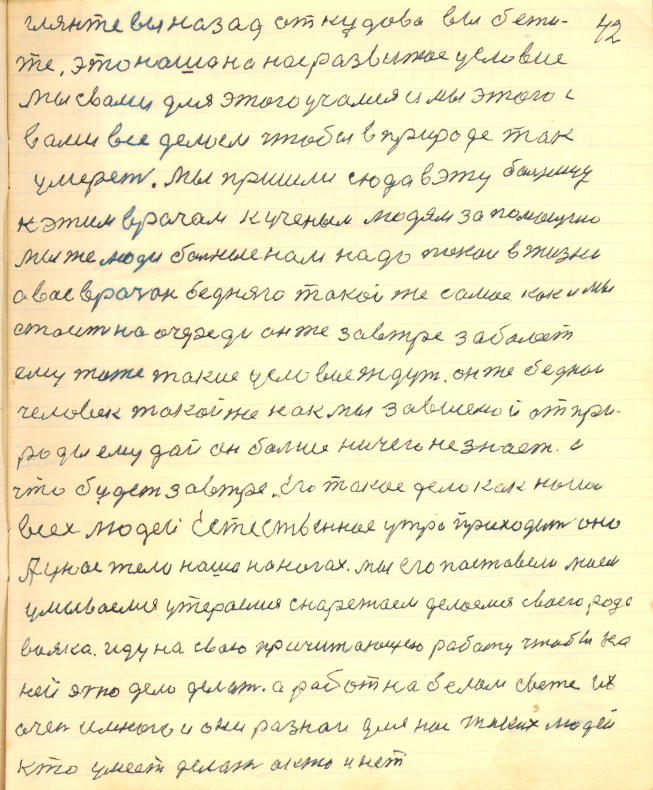 глянте вы назад откудова вы бежи- 42
те, это наша на нас развитое условие
мы свами для этого учамся и мы этого с
вами все делаем чтобы в природе так
умерет. мы пришли сюда в эту болницу
к этим врачам к ученым людям за помощию
мы же люди болные нам надо покои в жизни
а вас врачах бедняго такой же самое как и мы
стоит на очереди он же завтре заболеет
ему тоже такие условие ждут. он же беднои
человек такой же как мы зависемой от при-
роды ему дай он болше ничего не знает. а
что будет завтре. Его такое дело как наша
всех людей Естественное утра приходит оно
А у нас тело наша на ногах. мы его поставели моем
умываемся утераемся снаретаем делаемся своего рода
вояка. иду на свою причитающею работу чтобы на
ней это дело делат. а работ на белом свете их
очен и много и они разнаи для нас таких людей
кто умеет делат а кто и нет